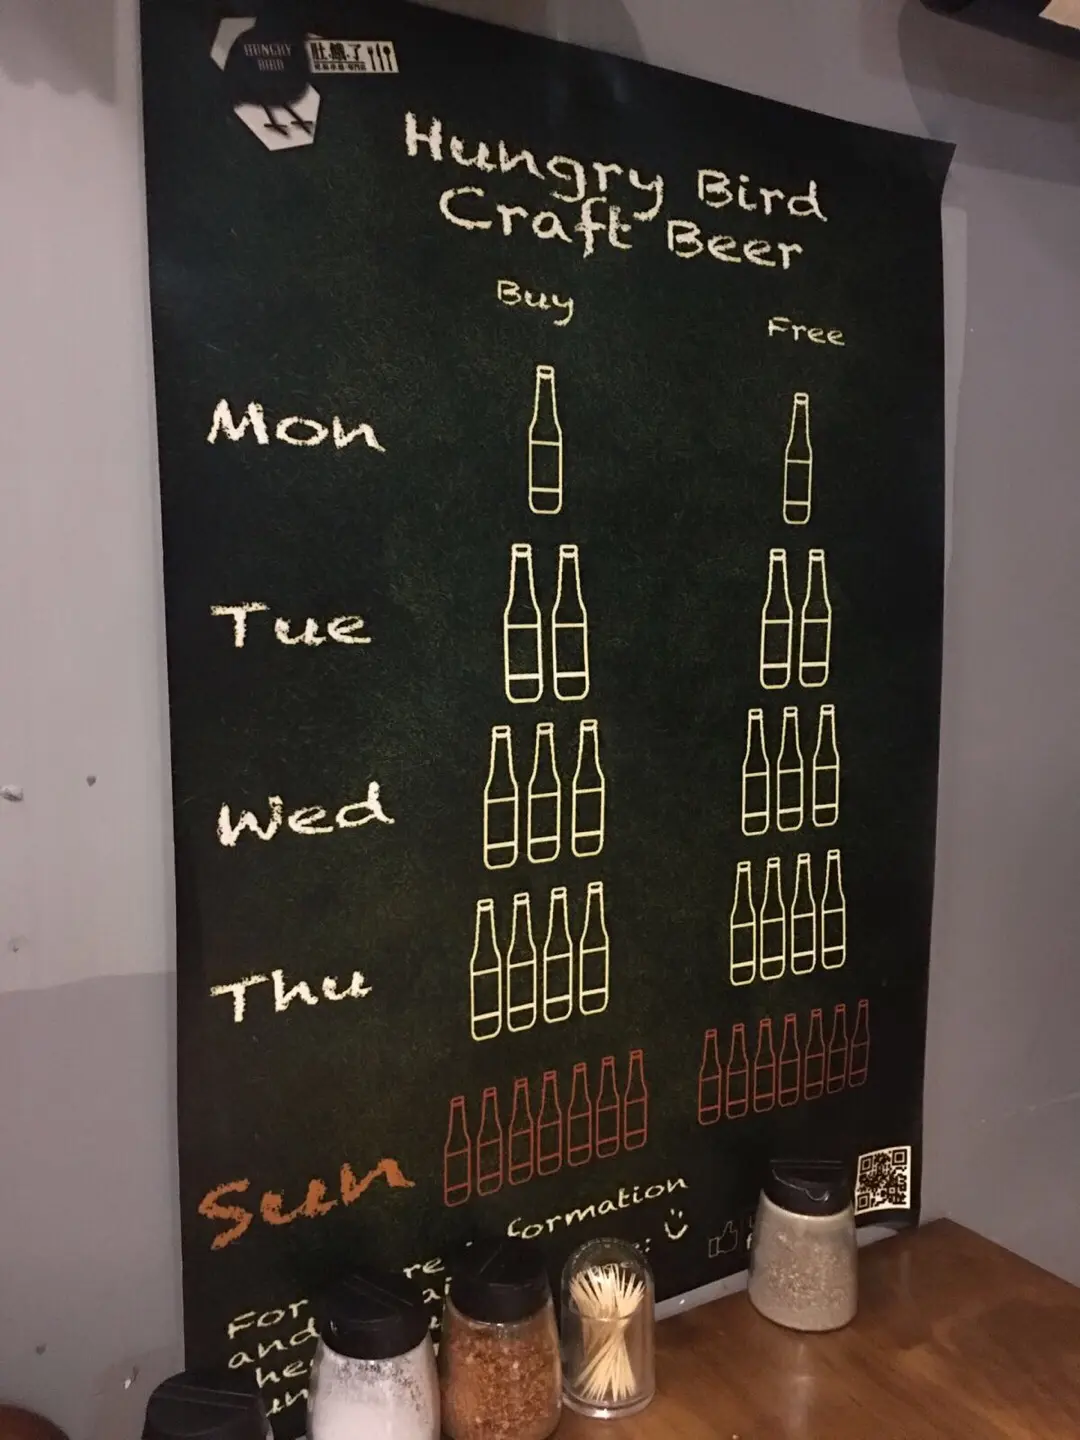 HUNGRY
BIRD
肚·餓·了
Hungry Bird
Craft Beer
Buy
Free
Mon
Tue
Wed
Thu
Sun
formation
For
and